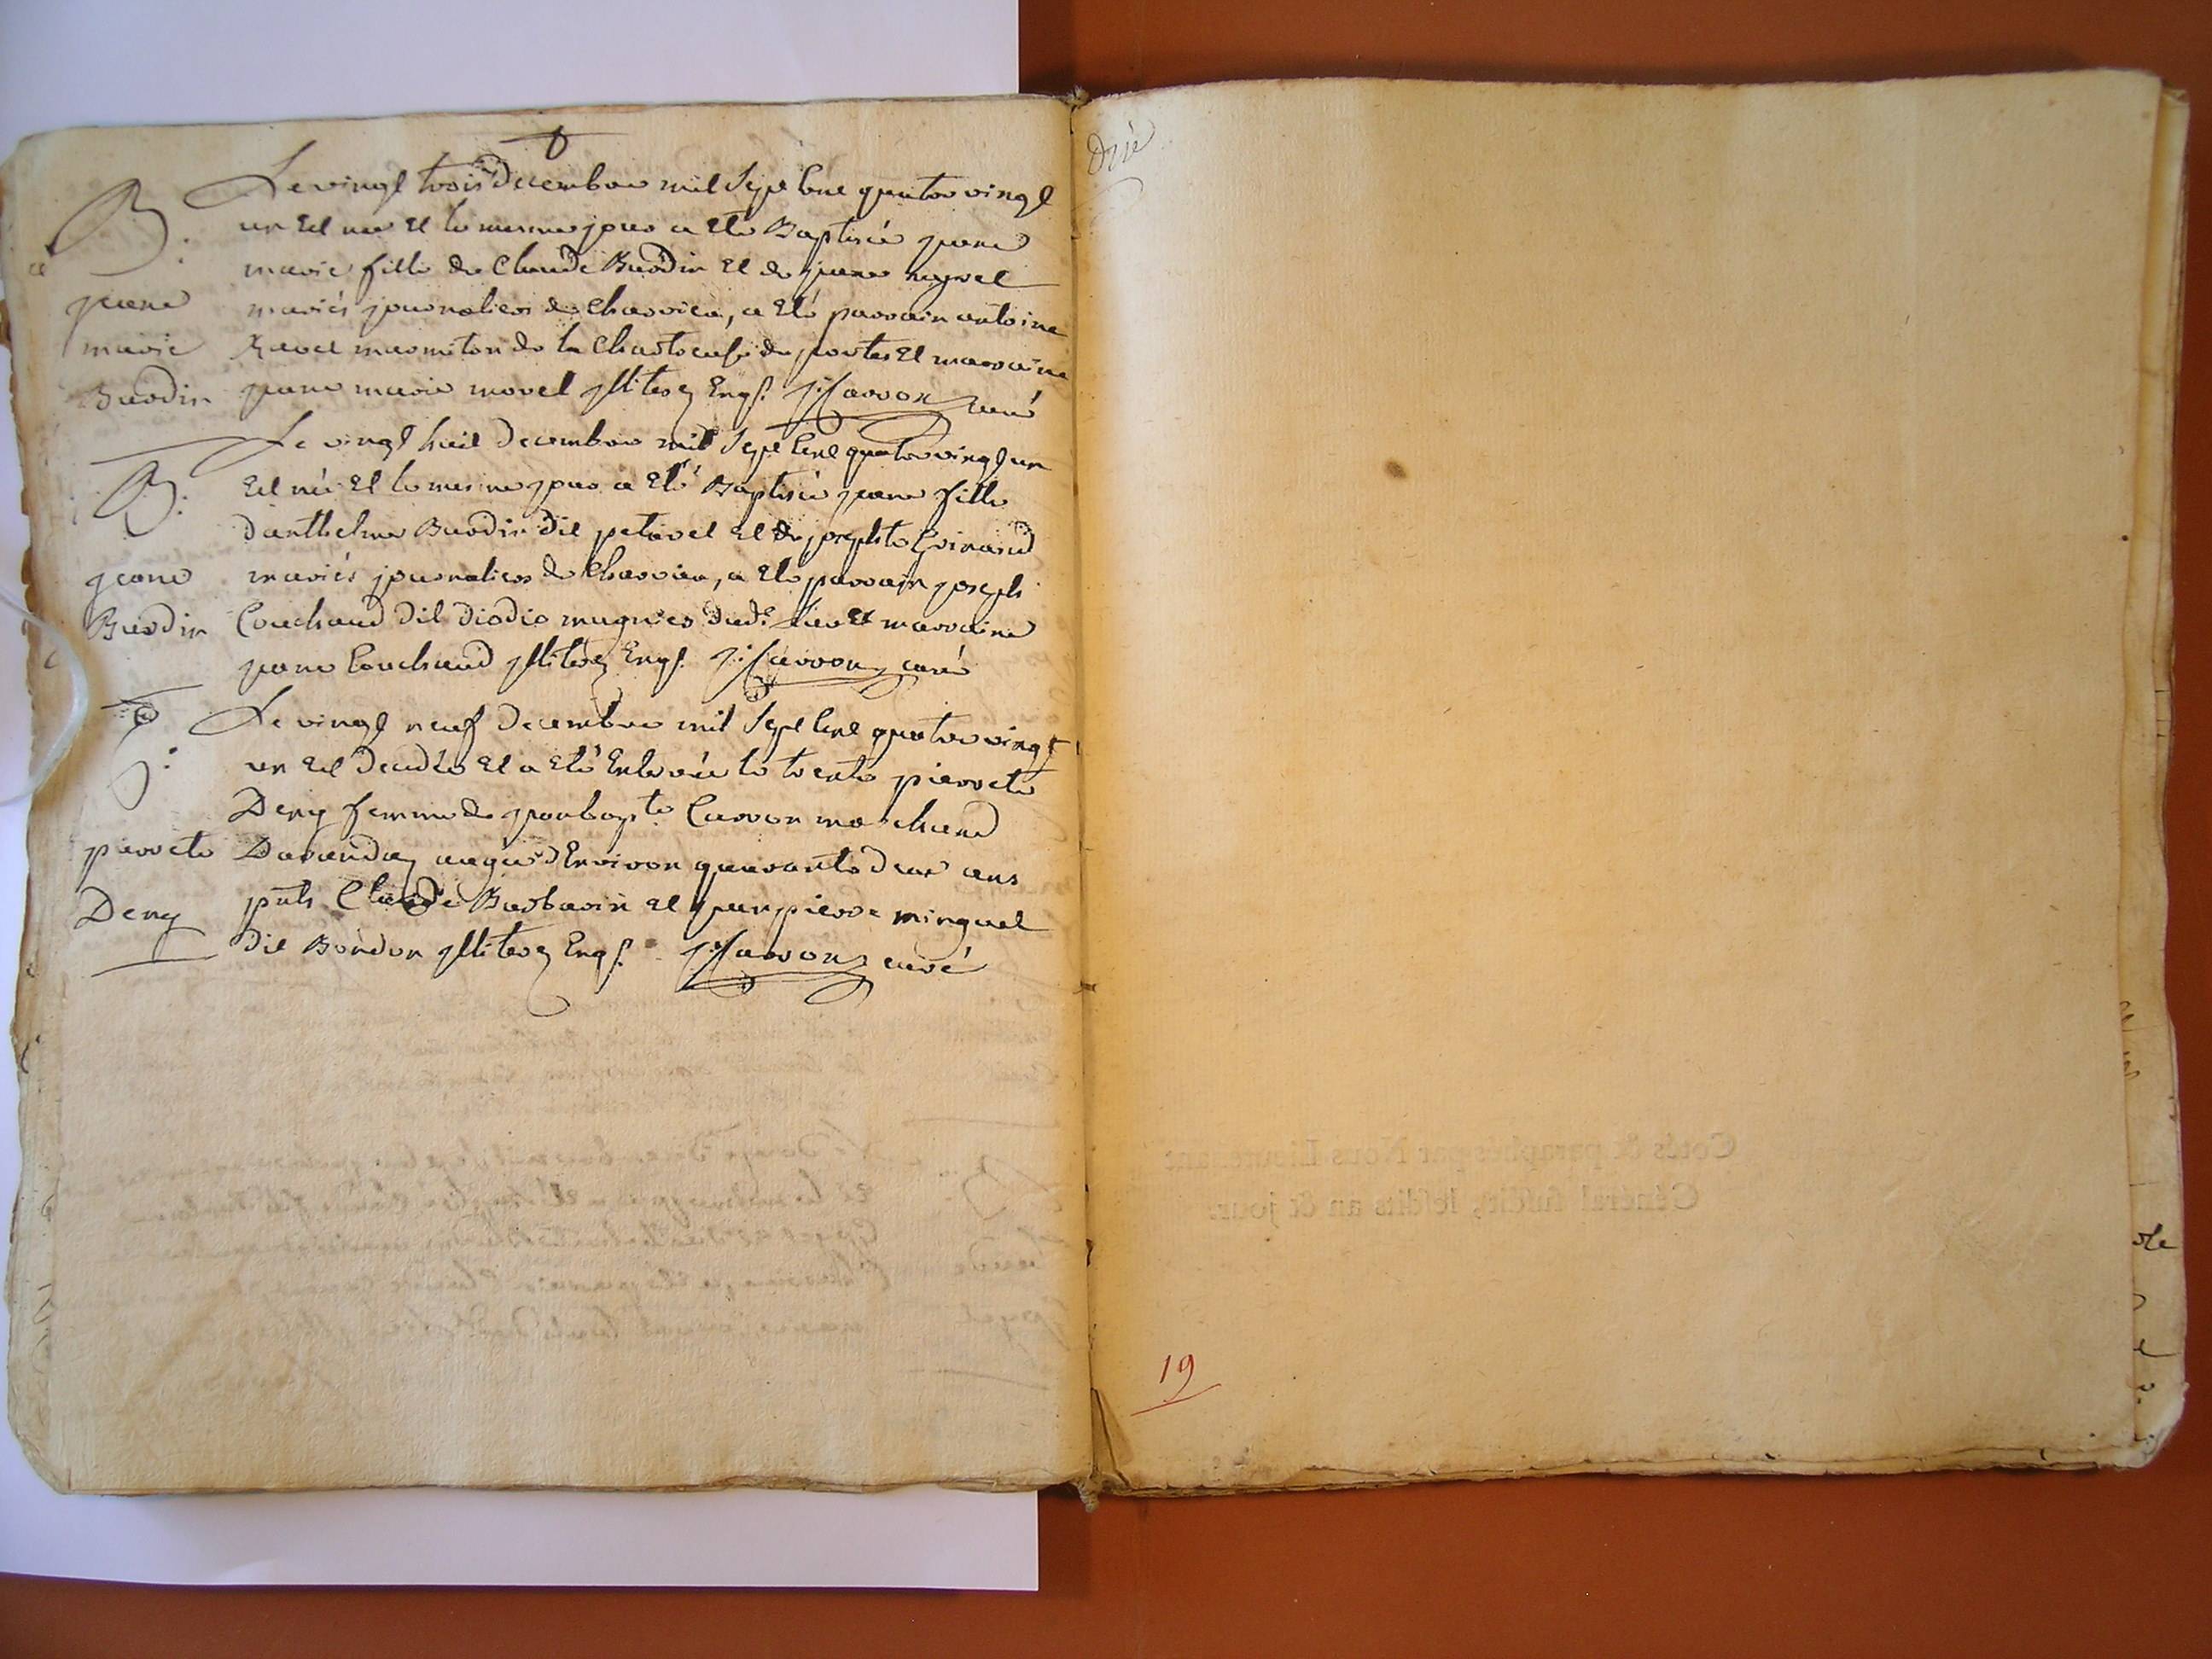 B.
jeane
marie
Burdin
Le vingt trois decembre mil sept cent quatre vingt
un est née et le mesme jour a eté Baptisée jeane
marie fille de Claude Burdin et de jeane
mariés journaliers de Charvieu, a eté parrain antoine
Ravet marmiton de la Chartreuse de portes et marraine
jeane marie morel illiterez Enqs. curé
B.
jeane
Burdin
Le vingt huit decembre mil sept cent quatre vingt un
est née et le mesme jour a eté Baptisée jeane fille
danthelme Burdin dit petavet et de josephte
mariés journaliers de Charvieu, a eté parrain joseph
Couchaud dit diodio mugnier dud. lieu et marraine
jeane Couchaud illiterez Enqs. curé
pierrete
Deny
Le vingt neuf decembre mil sept cent quatre vingt
un est decedée et a eté Enterrée le trente pierrete
Deny femme de jeanbapte Carron marchand
agée dEnviron quarante deux ans
pnts Claude Barbarin et jeanpierre minguet
dit Bordon illiterez Enqs. curé
19
Cotés & paraphés par Nous Lieutenant
Général susdit, lesdits an & jour.